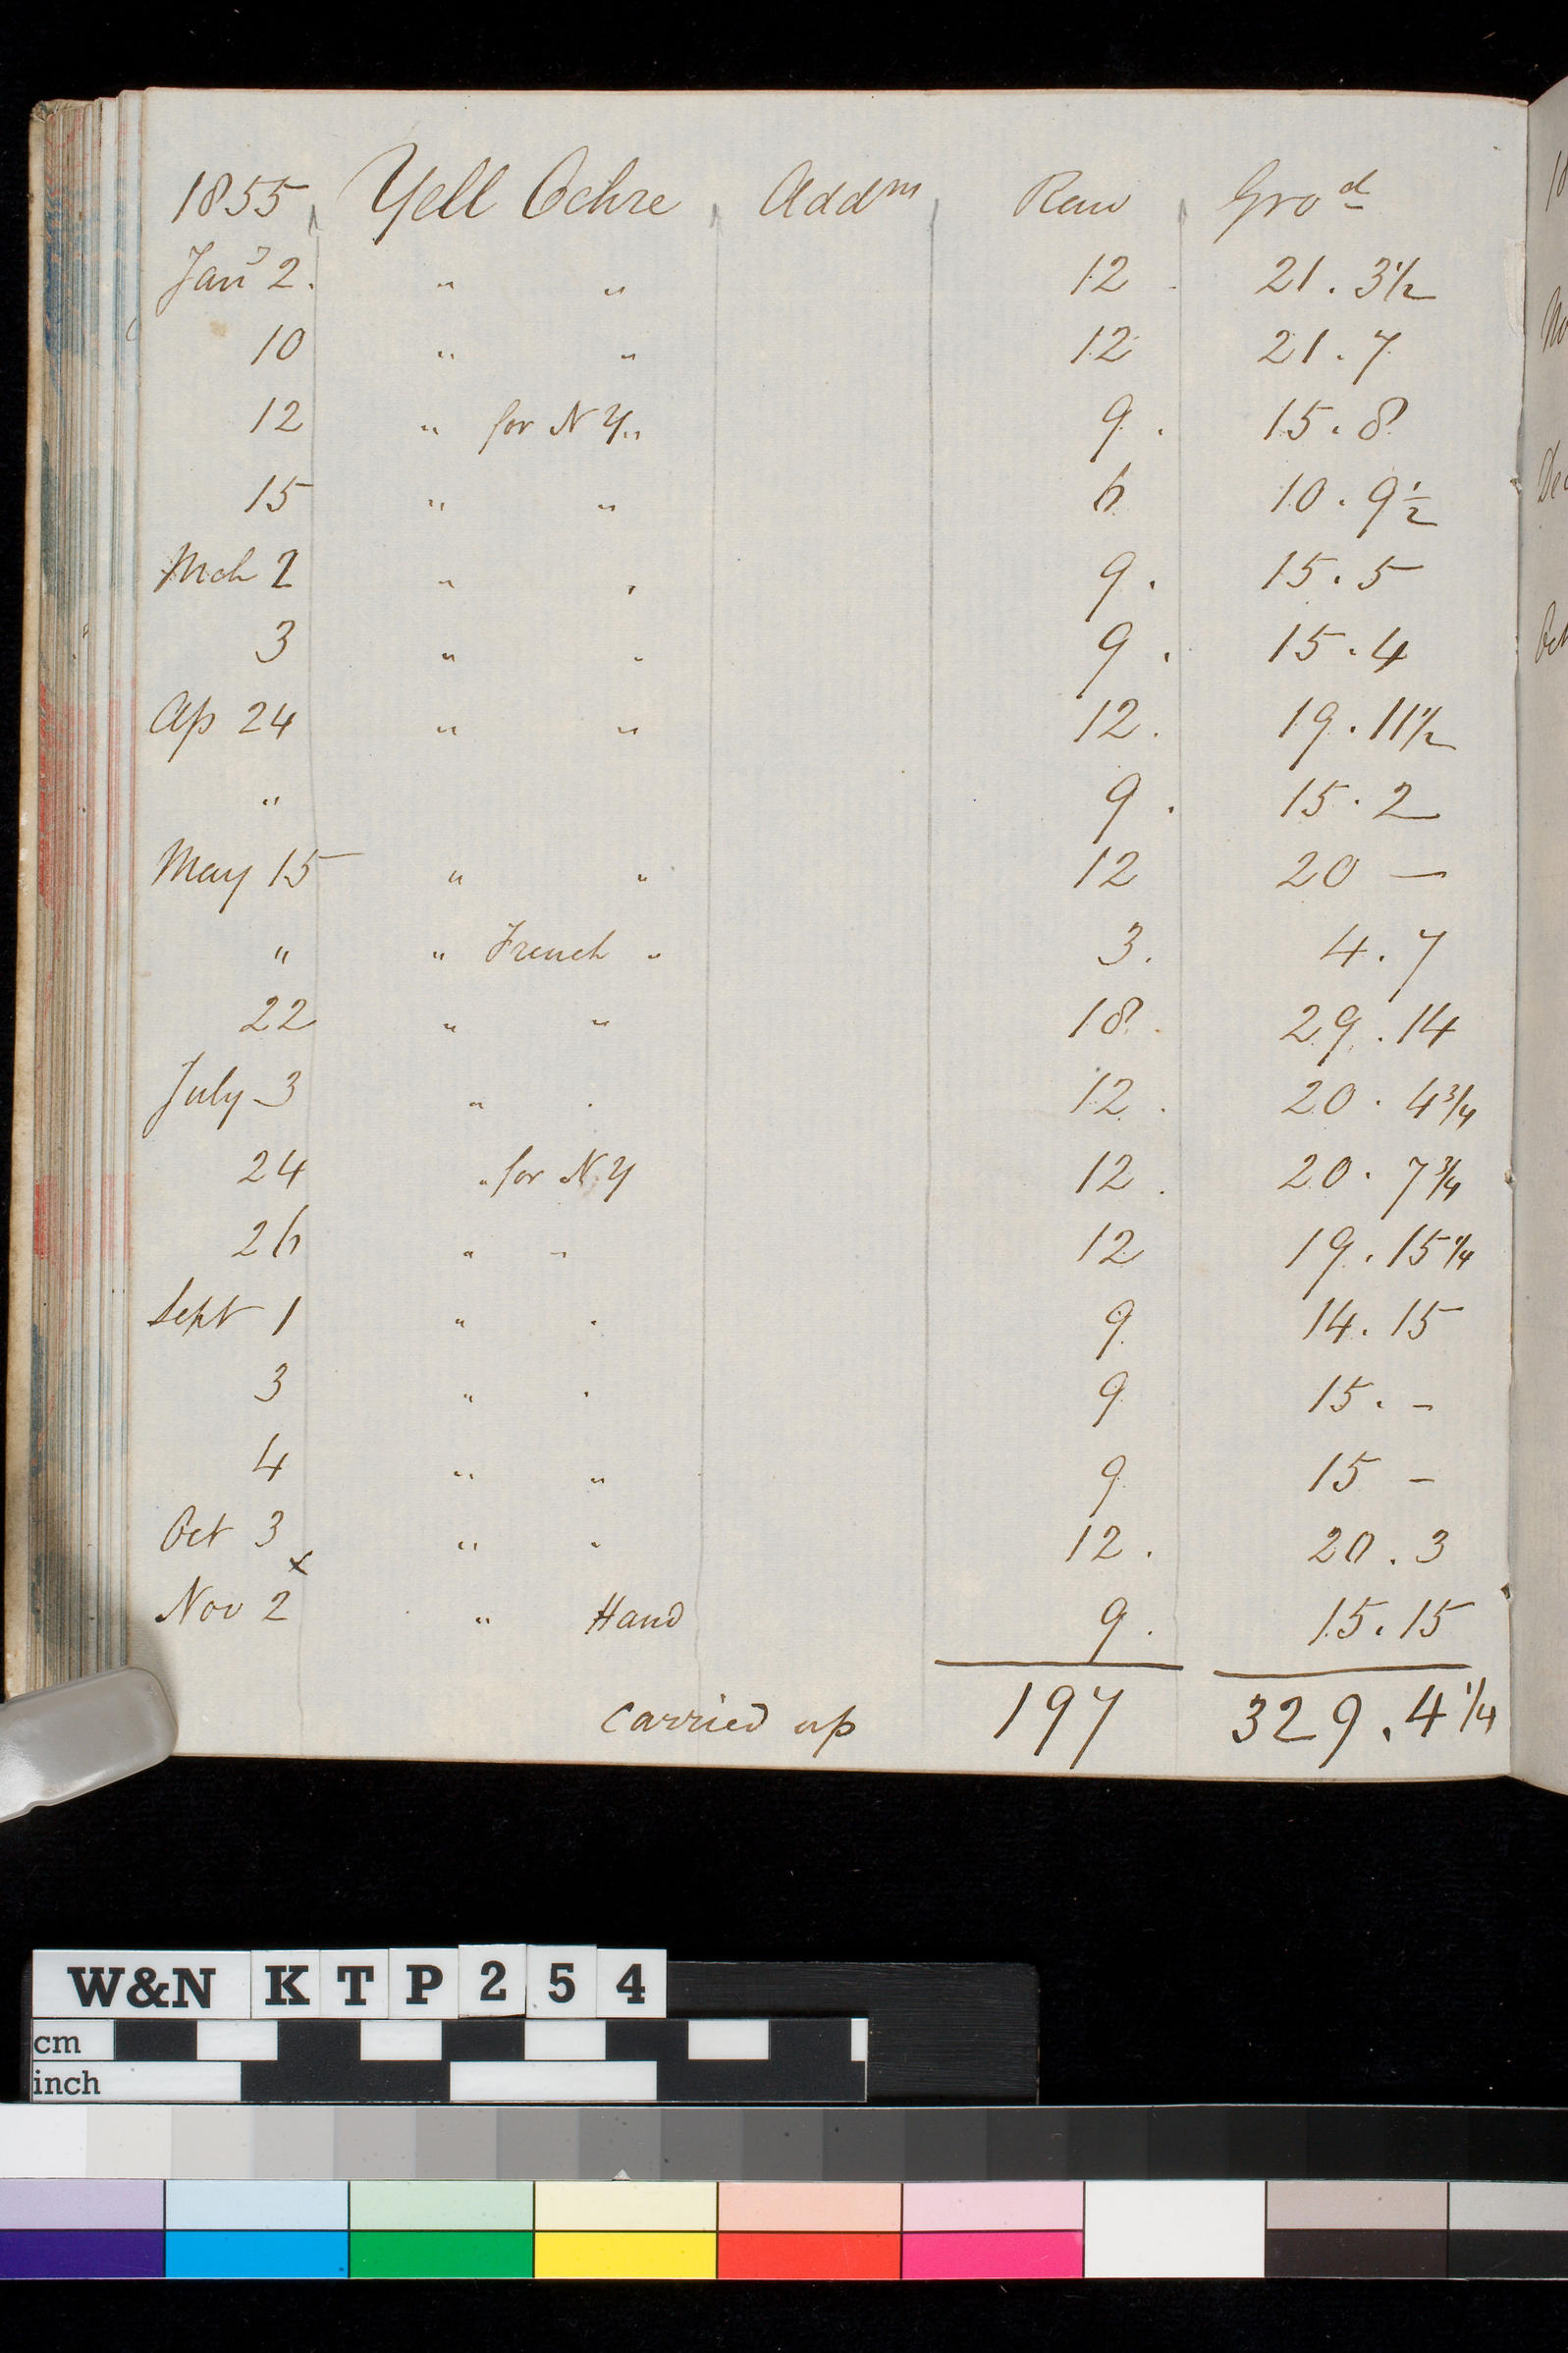 1855 Yell Ochre Addm Raw Grod
Jany 2. " " 12 21. 3 1/2
10 " " 12 21. 7
12 " for N Y " 9. 15. 8
15 " " 6 10. 9 1/2
Mch 2 " " 9. 15. 5
3 " " 9. 15. 4
Ap 24 " " 12. 19. 11 1/2
" 9. 15. 2
May 15 " " 12 20 —
" " French " 3. 4. 7
22 " " 18. 29. 14
July 3 " " 12. 20. 4 3/4
24 " for N.Y 12. 20. 7 3/4
26 " " 12 19. 15 1/4
Sept 1 " " 9 14. 15
3 " " 9 15. -
4 " " 9 15 -
Oct 3 " " 12. 20. 3
x
Nov 2 " Hand 9. 15. 15
carried up 197 329. 4 1/4
W&N KTP254
cm
inch